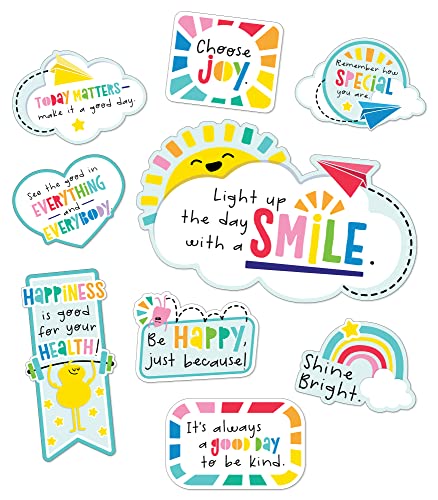 Choose
joy.
TODAY MATTERS—
make it a good day.
Remember how
SPECIAL
you are.
See the good in
EVERYTHING
—and—
EVERYBODY.
Light up
the day
with a SMILE.
HAPPINESS
is good
for your
HEALTH!
Be HAPPY,
just because!
Shine
Bright.
It's always
a good DAY
to be kind.